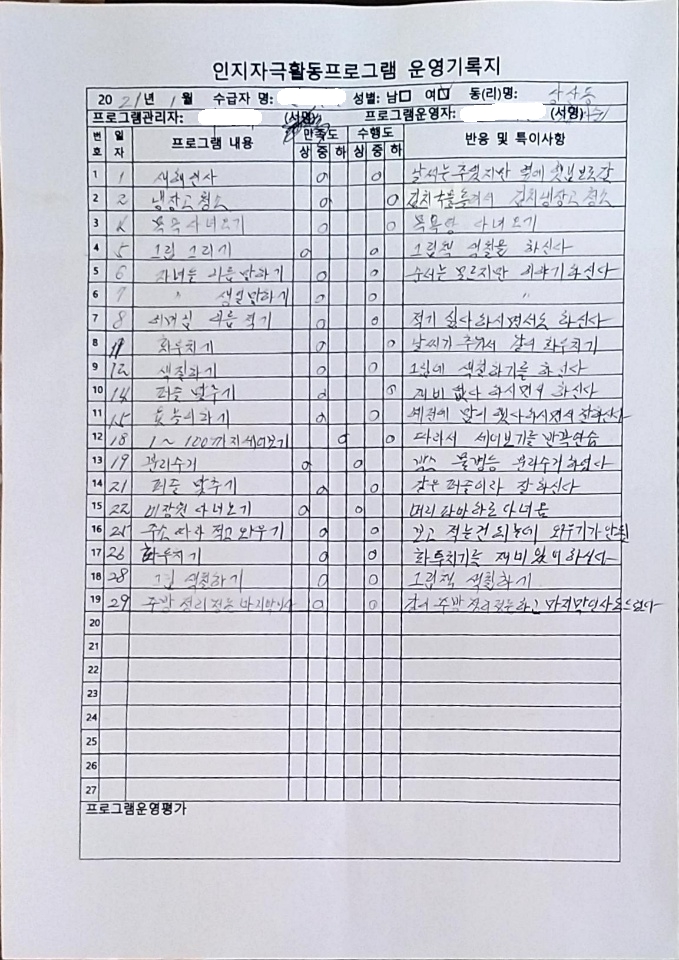 인지자극활동프로그램 운영기록지
2021년 1월 수급자 명: 성별: 남□ 여☑ 동(리)명:
프로그램관리자: (서명) 프로그램운영자: (서명)
번호 일자 프로그램 내용 만족도 수행도 반응 및 특이사항
상 중 하 상 중 하
1 1 새해인사 ○ ○ 날씨는 추웠지만
2 2 냉장고 청소 ○ ○ 김치냉장고 청소
3 4 목욕 다녀오기 ○ ○ 목욕탕 다녀오기
4 5 그림 그리기 ○ ○ 그림책 색칠을 하신다
5 6 자녀들 이름 말하기 ○ ○ 순서는 모르지만 이야기하신다
6 7 〃 생일말하기 ○ ○ 〃
7 8 이름 적기 ○ ○ 적기 싫다하시면서도 하신다
8 11 화투치기 ○ ○ 날씨가 추워서 같이 화투치기
9 12 색칠하기 ○ ○ 그림에 색칠하기를 하신다
10 14 퍼즐 맞추기 ○ ○ 재미 없다 하시면서 하신다
11 15 윷놀이하기 ○ ○ 예전에 많이 했다하시면서 잘하신다
12 18 1~100까지세어보기 ○ ○ 따라서 세어보기를 반복연습
13 19 분리수거 ○ ○ 박스 물병등 분리수거하였다
14 21 퍼즐 맞추기 ○ ○ 같은 퍼즐이라 잘 하신다
15 22 미장원 다녀오기 ○ ○ 머리 파마하로 다녀옴
16 25 주소 따라 적고 외우기 ○ ○ 보고 적는건 되는데 외우기가 안됨
17 26 화투치기 ○ ○ 화투치기를 재미있어 하신다
18 28 그림 색칠하기 ○ ○ 그림책 색칠하기
19 29 주방 정리정돈 마지막인사 ○ ○ 같이 주방 정리정돈하고 마지막인사를 드렸다
20
21
22
23
24
25
26
27
프로그램운영평가